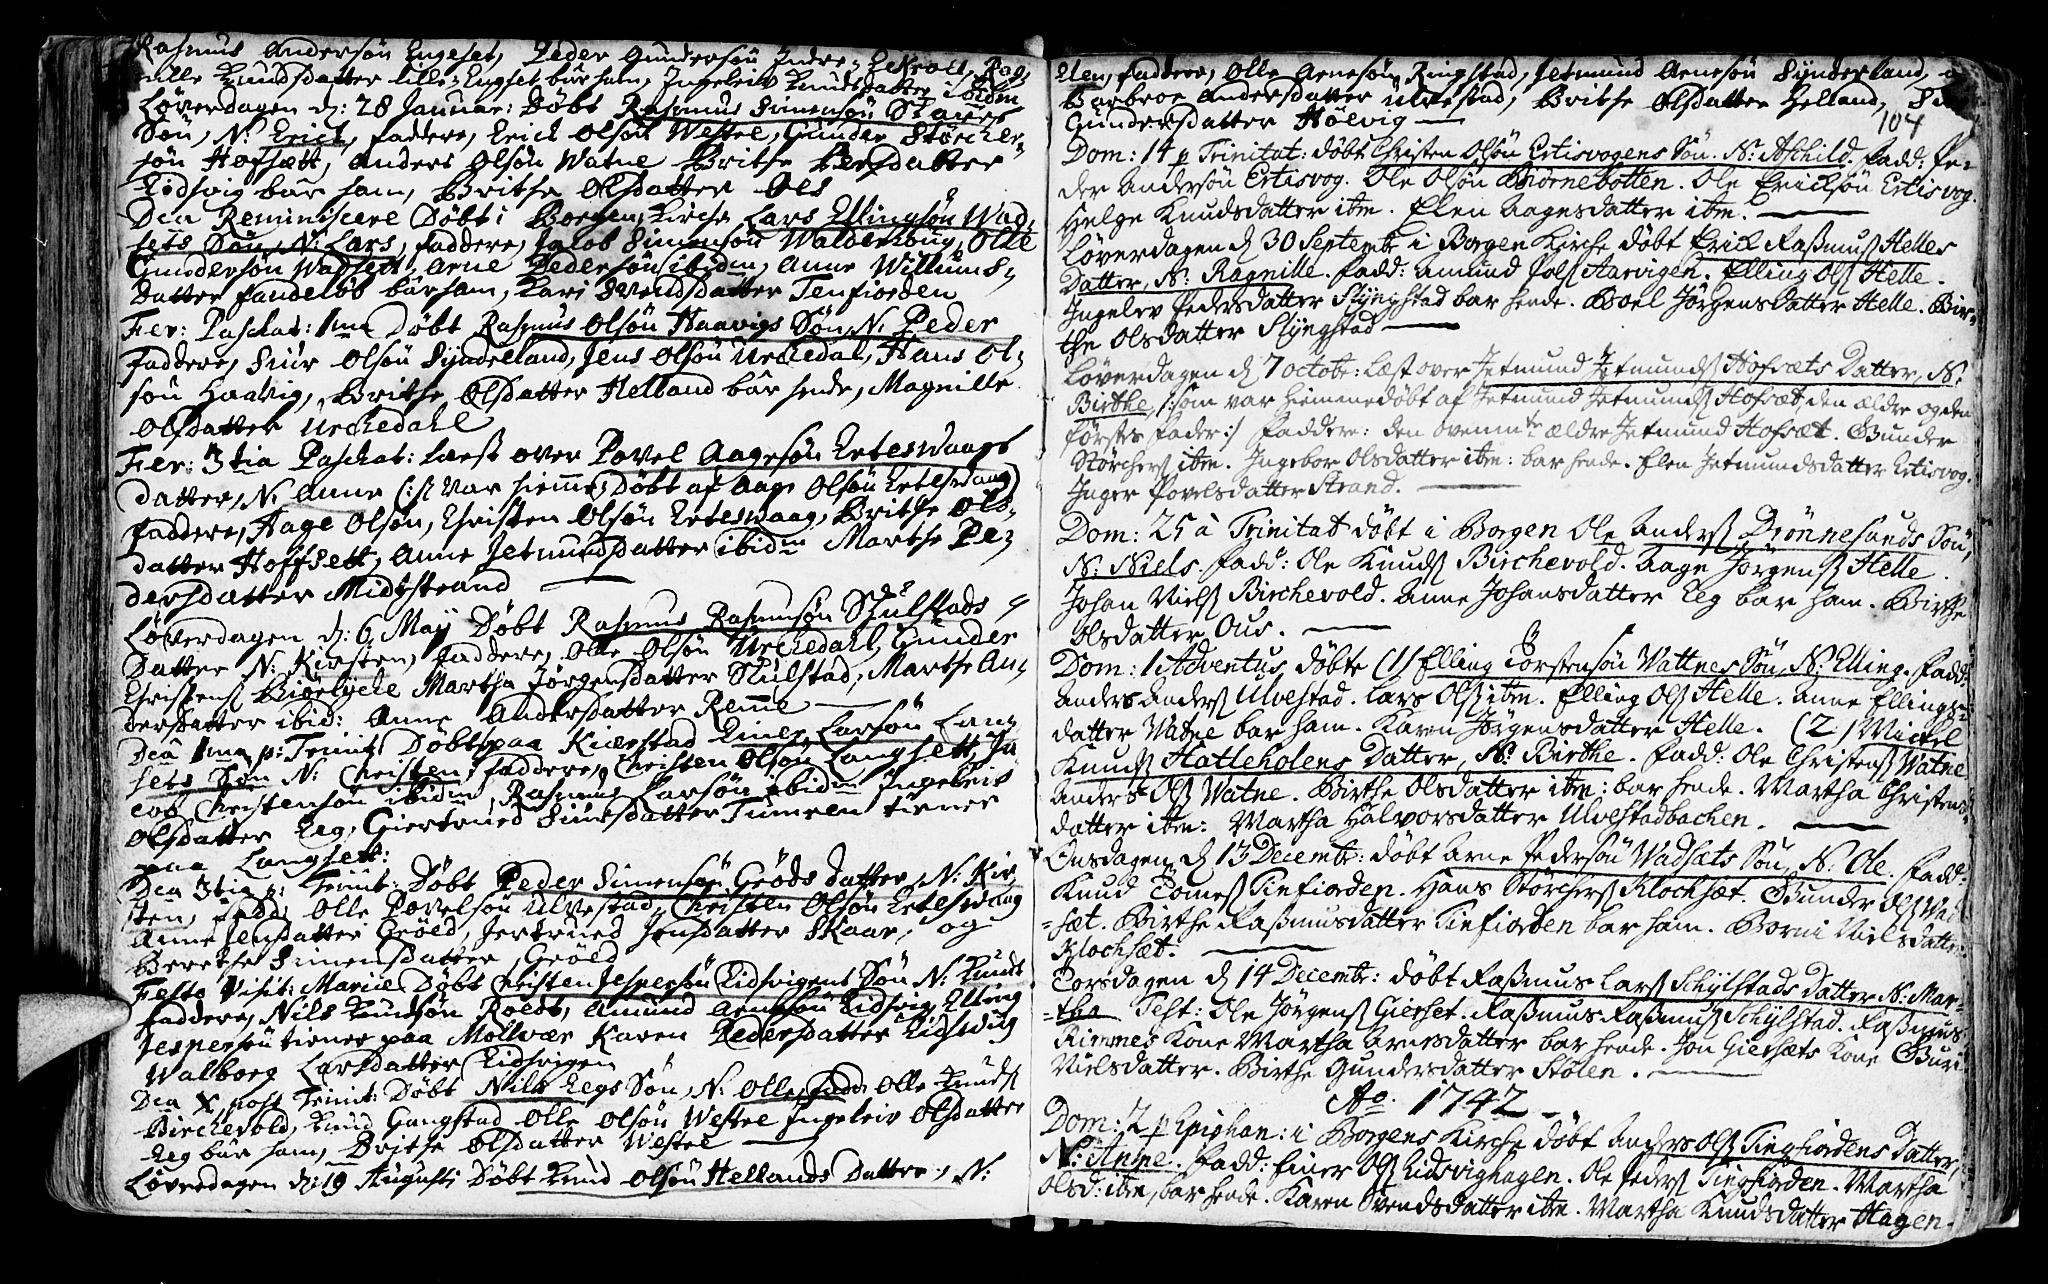 Rasmus Andersøn Engeset, Peder Gundersøn Indre-
nille Knudsdatter lille-Engset bar ham, Ingeleiv Knudsdatter
Løverdagen d: 28 Januar: Døbt Rasmus Simensøn
Søn, N: Erich, faddere, Erich Olsøn Westre, Gunder Størcher-
søn Hofsætt, Anders Olsøn Watne Brithe Persdatter
Eidsvig bar ham, Brithe Olsdatter
Dca Reminiscere Døbt i Borgen Kirche Lars Ellingsøn Wad-
sets Søn, N: Lars, faddere, Jacob Simensøn Walderhoug, Olle
Gundersøn Wadsett, Arne Pedersøn ibidm, Anne Willums-
datter fandeløb bar ham, Kari Svendsdatter Tenfiorden
Fer: Paschat: 1ma Døbt Rasmus Olsøn Haavigs Søn N: Peder
faddere, Siur Olsøn Synderland, Jens Olsøn Urchedal, Hans Ol-
søn Haavig, Brithe Olsdatter Helland bar hende, Magnille
Olsdatter Urchedahl
Fer: 3tia Paschat: læst over Povel Aagesøn Erteswaags
datter, N: Anne (: st var hieme-Døbt af Aage Olsøn Erteswaag)
faddere, Hage Olsøn, Christen Olsøn Erteswaag, Brithe Ols-
datter Hoffsett, Anne Jetmundsdatter ibidm Marthe Pe-
dersdatter Midtstrand
Løverdagen d: 6 Maij Døbt Rasmus Rasmusøn Skulstads
Datter N: Kirsten, faddere, Olle Olsøn Urchedahl, Gunder
Christens Martha Jørgensdatter Skulstad, Marthe An-
dersdatter ibid: Anne Andersdatter Reme
Dca 1ma p: Trinit: Døbt paa Kierstad Einer Larsøn Lang
sets Søn N: Christen, faddere, Christen Olsøn Langsett, Ja
cob Christensøn ibidm, Rasmus Larsøn ibidm Ingeleiv
Olsdatter Eeg, Giertrued Simesdatter Tumren tiener
paa Langsett:
Dca 3tia p: Trinit: Døbt Peder Simensøn Grøds datter, N: Kir-
sten, fadd: Olle Povelsøn Ulvestad, Christen Olsøn Erteswaag
Anne Jensdatter Grøld, Jertrued Jensdatter Skaar, og
Berethe Simensdatter, Grøld
Festo Visit: Mariæ Døbt Christen Jespersøn Eidsvigens Søn N: Knudt
faddere, Nils Knudsøn Roedt, Amund Arnesøn Eidsvig, Elling
Jespersøn tiener paa Mollvær Karen Pedersdatter Eidsvig
Walborg Larsdatter Eidsvigen
Dca X post Trinit: Døbt Nils Eegs Søn, N: Olle, fadd: Olle Knuds
Birchevold, Knud Gangstad Olle Olsøn Westre Ingeleiv Olsdatter
Eeg bar ham, Brithe Olsdatter Westre
Løverdagen d: 19 Augusti Døbt Knud Olsøn Hellands Datter, N:
Elen, faddere, Olle Arnesøn Ringstad, Jetmund Arnesøn Synderland,
Barbroe Andersdatter Ulvestad, Brithe Olsdatter Helland,
Gundersdatter Hølvig
104
Dom: 14 p Trinitat: døbt Christen Olsøn Ertisvogens Søn. N: Aschild. Fadd: Pe-
der Andersøn Ertisvog. Ole Olsøn Biørnebotten. Ole Ericksøn Ertisvog.
Helge Knudsdatter itm. Elen Aagesdatter itm.
Løverdagen d 30 Septembr i Borgen Kirche døbt Erick Rasmus Helles
Datter, N: Ragnille. Fadd: Amund Pols Aarvigen. Elling Ols Helle.
Ingelev Pedersdatter Slyngstad bar hende. Boel Jørgensdatter Helle. Bir-
the Olsdatter Slyngstad
Løverdagen d 7 octobr: læst over Jetmund Jetmunds Hofsæts Datter, N:
Birthe, /: som var hiemmedøbt af Jetmund Jetmunds Hofsæt, den ældre og den
førstes fader :/ Faddere: den ovennte ældre Jetmund Hofsæt. Gunder
Størchers itm. Ingebor Olsdatter itm: bar hende. Elen Jetmundsdatter Ertisvog.
Inger Povelsdatter Strand.
Dom: 25 à Trinitat døbt i Borgen Ole Anders Drønnesunds Søn,
N: Niels. Fadd: Ole Knuds Birchevold. Aage Jørgens Helle.
Johan Niels Birchevold. Anne Johansdatter Eeg bar ham. Birthe
Olsdatter Ous.
Dom: 1 Adventus, døbte (1) Elling Torstensøn Wattnes Søn, N: Elling. Fadd:
Anders Anders Ulvestad. Lars Ols itm. Elling Ols Helle. Anne Ellings-
datter Watne bar ham. Karen Jørgensdatter Helle. (2) Mickel
Knuds Hatleholens Datter, N: Birthe. Fadd: Ole Christens Watne
Anders Ols Watne. Birthe Olsdatter itm: bar hende. Martha Christens
datter itm: Martha Halvorsdatter Ulvestadbachen.
Onsdagen d 13 Decembr: døbt Arne Pedersøn Wadsæts Søn, N: Ole. Fadd:
Knud Tomes Tinfiorden. Hans Størchers Klochsæt. Gunder Ols Wad
-sæt. Birthe Rasmusdatter Tinfiorden bar ham. Borni Nielsdatter
Klochsæt.
Torsdagen d 14 Decembr: døbt Rasmus Lars Schylstads Datter N: Mar-
-tha Test: Ole Jørgens Gierset. Rasmus Rasmus Schylstad. Rasmus
Rimmes Kone Martha Arnesdatter bar hende. Jon Giersæts Kone Guri
Nielsdatter. Birthe Gundersdatter Stølen.
Ao. 1742
Dom: 2 p Epiphan: i Borgens Kirche døbt Anders Ols Tingfiordens Datter,
N: Anne. Fadd: Einer Ols Eidsvighagen. Ole Peders Tingfiorden. Martha
Olsd: itm, bar hende. Karen Svendsdatter itm. Martha Knudsdatter Hagen.